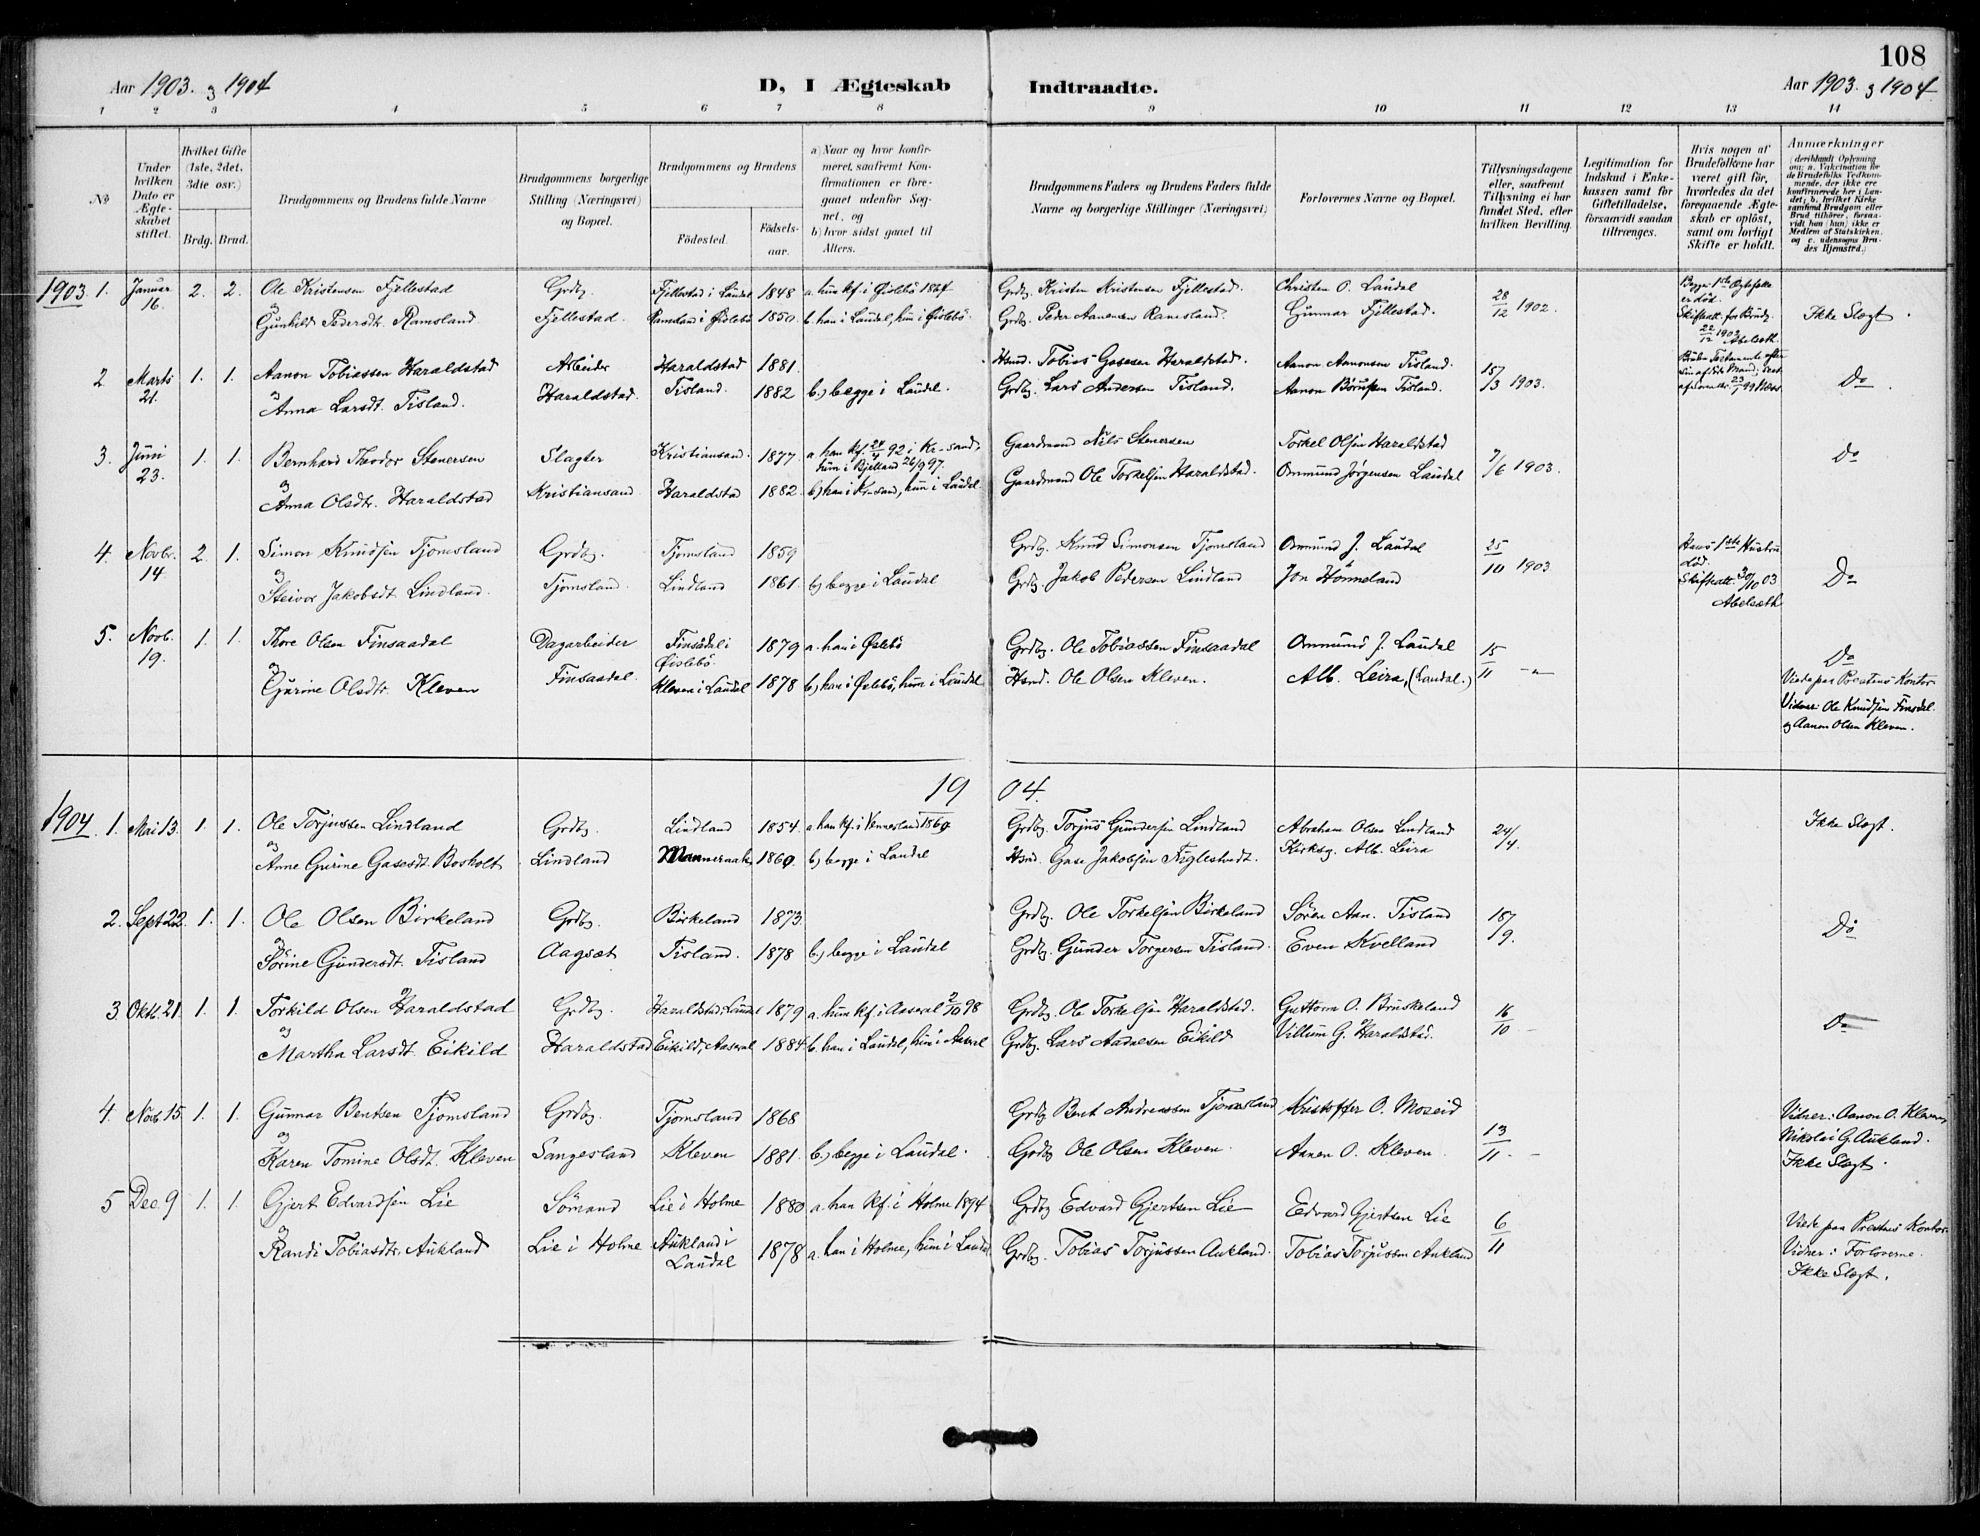 108
Aar 1903. og 1904
D, I Ægteskab Indtraadte.
Aar 1903. og 1904
1 2 3 4 5 6 7 8 9 10 11 12 13 14
No
Under hvilken Dato er Ægteskabet stiftet.
Hvilket Gifte (1ste, 2det, 3die osv.)
Brdg. Brud.
Brudgommens og Brudens fulde Navne
Brudgommens borgerlige Stilling (Næringsvei) og Bopæl.
Brudgommens og Brudens
Fødested. Fødselsaar.
a) Naar og hvor konfirmeret, saafremt Konfirmationen er foregaaet udenfor Sognet, og
b) hvor sidst gaaet til Alters.
Brudgommens Faders og Brudens Faders fulde Navne og borgerlige Stillinger (Næringsvei)
Forlovernes Navne og Bopæl.
Tillysningsdagene eller, saafremt Tillysning ei har fundet Sted, efter hvilken Bevilling.
Legitimation for Indskud i Enkekassen samt for Giftetilladelse, forsaavidt saadan tiltrænges.
Hvis nogen af Brudefolkene har været gift før, hvorledes da det foregaaende Ægteskab er opløst, samt om lovligt Skifte er holdt.
Anmærkninger
(deriblandt Oplysning om: a. Vakcination for de Brudefolks Vedkommende, der ikke ere konfirmerede her i Landet; b. hvilket Kirkesamfund Brudgom eller Brud tilhører, forsaavidt han (hun) ikke er Medlem af Statskirken, og c. udensogns Brudes Hjemsted.)
1903. 1. Januar 16. 2. 2. Ole Kristensen Fjellestad Grdbg. Fjellestad i Laudal 1848 a. hun kf. i Øislebö 1864 Grdbg. Kristen Kristensen Fjellestad. Christen O. Laudal 28/12 1902. Begge 1ste Ægtefælle er død. Ikke Slægt.
og Gunhild Pedersdt. Ramsland Fjellestad. Ramsland i Øislebö 1850. b. han i Laudal, hun i Øislebö Grdbg. Peder Aanensen Ramsland. Gunnar Fjellestad.
Skifteatt. for Brudg. 22/12 1902 Abelseth
2. Marts 21. 1. 1. Aanon Tobiassen Haraldstad Arbeider Haraldstad 1881. Hsmd. Tobias Gasesen Haraldstad. Aanon Aanonsen Tisland. 15/3 1903. Do
og Anna Larsdt. Tisland. Haraldstad. Tisland. 1882 b.) begge i Laudal. Grdbg. Lars Andersen Tisland. Aanon Børufsen Tisland.
3. Juni 23. 1. 1. Bernhard Theodor Stenersen Slagter Kristiansand. 1877. a. han kf. 24/4 92 i Kr-sand, hun i Bjelland 26/9 97. Gaardmand Nils Stenersen Torkel Olsen Haraldstad 7/6 1903. Do
og Anna Olsdtr. Haraldstad Kristiansand Haraldstad 1882. b) han i Kr-sand, hun i Laudal. Gaardmand Ole Torkelsen Haraldstad. Ommund Jørgensen Laudal
4. Novbr. 14. 2. 1. Simon Knudsen Tjomsland Grdbg. Tjomsland 1859 Grdbg. Knud Simonsen Tjomsland Ommund J. Laudal 25/10 1903 Hans 1ste Hustru død. Do
og Steivor Jakobsdt. Lindland. Tjomsland. Lindland 1861. b) begge i Laudal Grdbg. Jakob Pedersen Lindland Jon Hönneland Skifteatt. 30/10 03 Abelseth
5. Novb. 19. 1. 1. Thore Olsen Finsaadal Dagarbeider Finsådal i Øislebö. 1879 a. han i Øislebö Grdbg. Ole Tobiassen Finsaadal Ommund J. Laudal 15/11 - " - Do
og Gurine Olsdtr. Kleven Finsaadal. Kleven i Laudal 1878 b) han i Øislebö, hun i Laudal Hsmd. Ole Olsen Kleven. Alb. Leira, (Laudal.)
Viede paa Prestens Kontor
Vidner: Ole Knudsen Finsdal.
og Aanon Olsen Kleven.
19 04.
1904. 1. Mai 13. 1. 1. Ole Torjussen Lindland Grdbg. Lindland 1854. a. han kf. i Vennesland 1869 Grdbg. Torjus Gundersen Lindland Abraham Olsen Lindland 24/4. Ikke Slægt.
og Anne Gurine Gasesdt. Bosholt Lindland 1860. b) begge i Laudal Hsmd. Gase Jakobsen Fuglestvedt. Kirksg. Alb. Leira
2. Sept 22. 1. 1. Ole Olsen Birkeland Grdbg. Birkeland 1873. Grdbg. Ole Torkelsen Birkeland Sören Aan. Tisland 18/9. Do
og Sörine Gundersdt. Tisland Aagset Tisland. 1878 b) begge i Laudal Grdbg. Gunder Torgersen Tisland. Even Kvelland
3. Oktb. 21. 1. 1. Torkild Olsen Haraldstad Grdbg. Haraldstad, Laudal 1879 a. hun kf. i Aaseral 2/10 98 Grdbg. Ole Torkelsen Haraldstad. Guttorm O. Bruskeland 16/10 - Do
og Martha Larsdt. Eikild Haraldstad Eikild, Aaseral 1884 b. han i Laudal, hun i Aaseral Grdbg. Lars Aadalsen Eikild Villum G. Haraldstad.
4. Novb. 15. 1. 1. Gunnar Bentsen Tjomsland Grdbg. Tjomsland 1868 Grdbg Bent Andreassen Tjomsland Kristoffer O. Moseid 13/11. - Vidner: Aanon O. Kleven,
og Karen Tomine Olsdt. Kleven Sangesland Kleven 1881. b.) begge i Laudal. Grdbg Ole Olsen Kleven. Aanen O. Kleven. Nikolai G. Aukland.
Ikke Slægt.
5 Dec. 9 1. 1. Gjert Edvardsen Lie Sömand Lie i Holme 1880 a. han kf. i Holme 1894 Grdbg Edvard Gjertsen Lie Edvard Gjertsen Lie 6/11 Viede paa Prestens Kontor.
og Randi Tobiasdtr. Aukland Lie i Holme Aukland i Laudal 1878 a. han i Holme, hun i Laudal Grdbg. Tobias Torjussen Aukland. Tobias Torjussen Aukland Vidner: Forloverne.
Ikke Slægt.